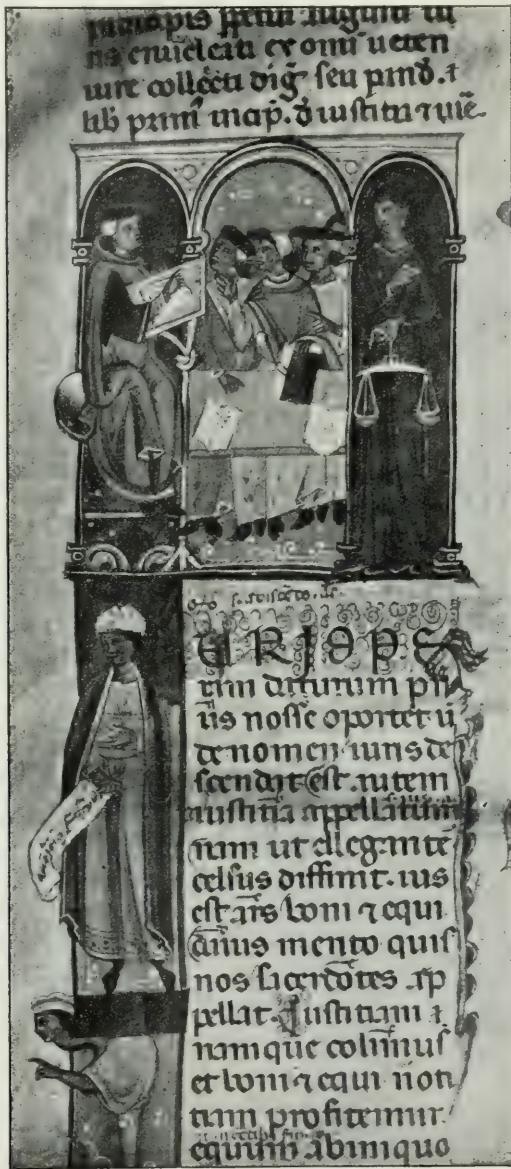 principis ꝑpetui augusti iu
ris enucleati ex omi ueteri
iure collecti dig̅ seu pand̅. ⁊
lib primꝰ incip̅. d̅ iustitia ⁊ iuͬe
URIOPE
ram daturum pri
us nosse oportet u
de nomen iuris de
scendit est autem
iustitia appellatum
nam ut eleganter
celsus diffinit. ius
est ars boni ⁊ equi
cuius merito quis
nos sacerdotes ap
pellat. Iustitiam
namque colimus
et boni ⁊ equi noti
tiam profitemur
equum ab iniquo